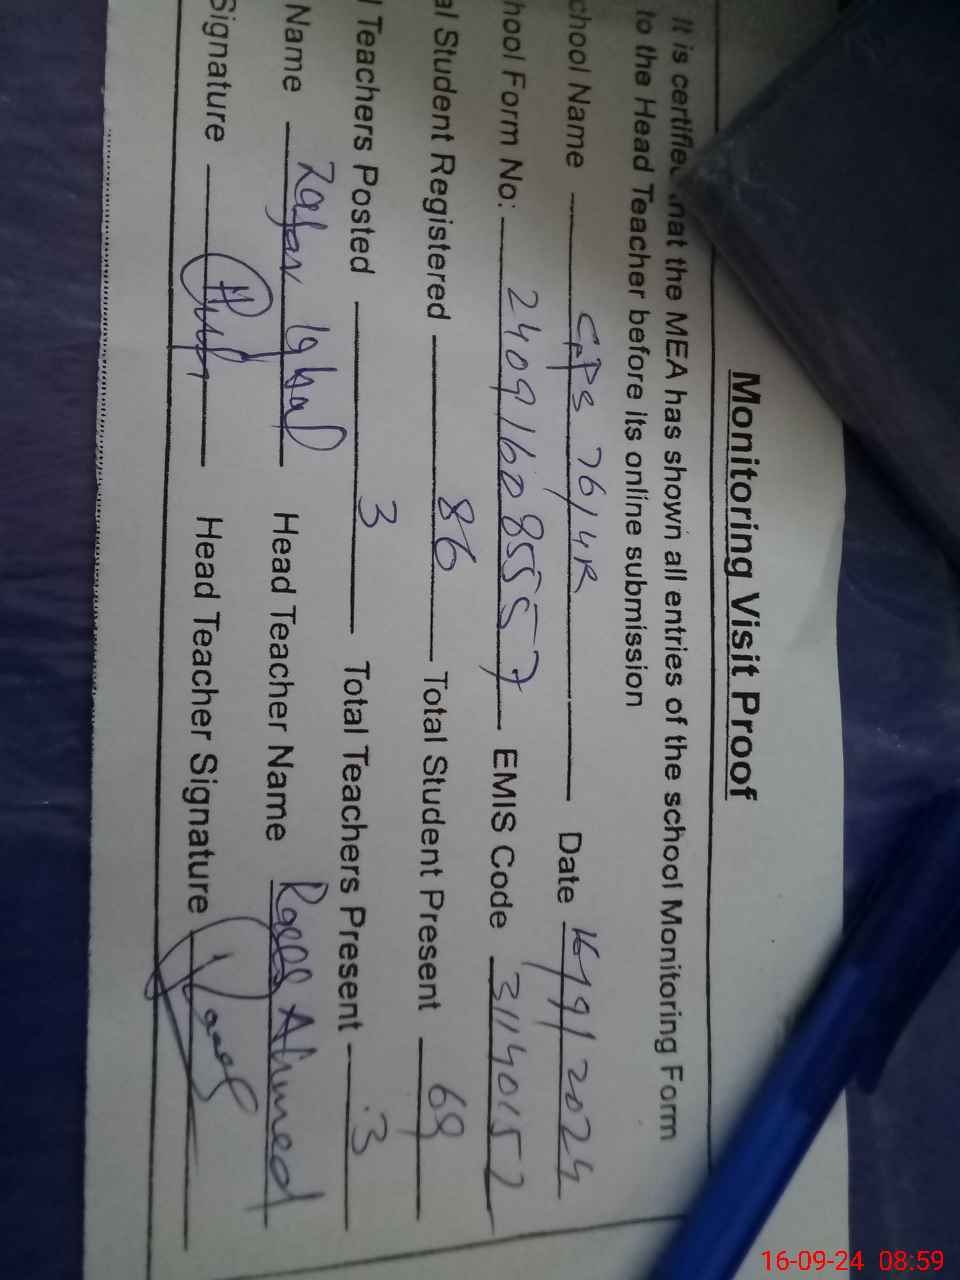 Monitoring Visit Proof
It is certified that the MEA has shown all entries of the school Monitoring Form
to the Head Teacher before its online submission
chool Name GPS 76/4R Date 16/9/2024
hool Form No: 240916085557 EMIS Code 31140152
al Student Registered 86 Total Student Present 69
l Teachers Posted 3 Total Teachers Present 3
Name Zafar Iqbal Head Teacher Name Raees Ahmed
Signature Head Teacher Signature
16-09-24 08:59